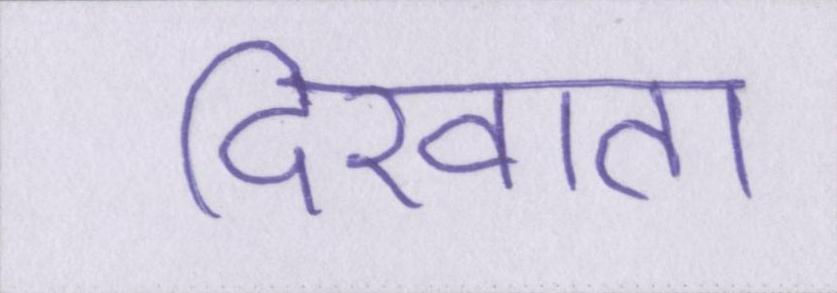 दिखाता